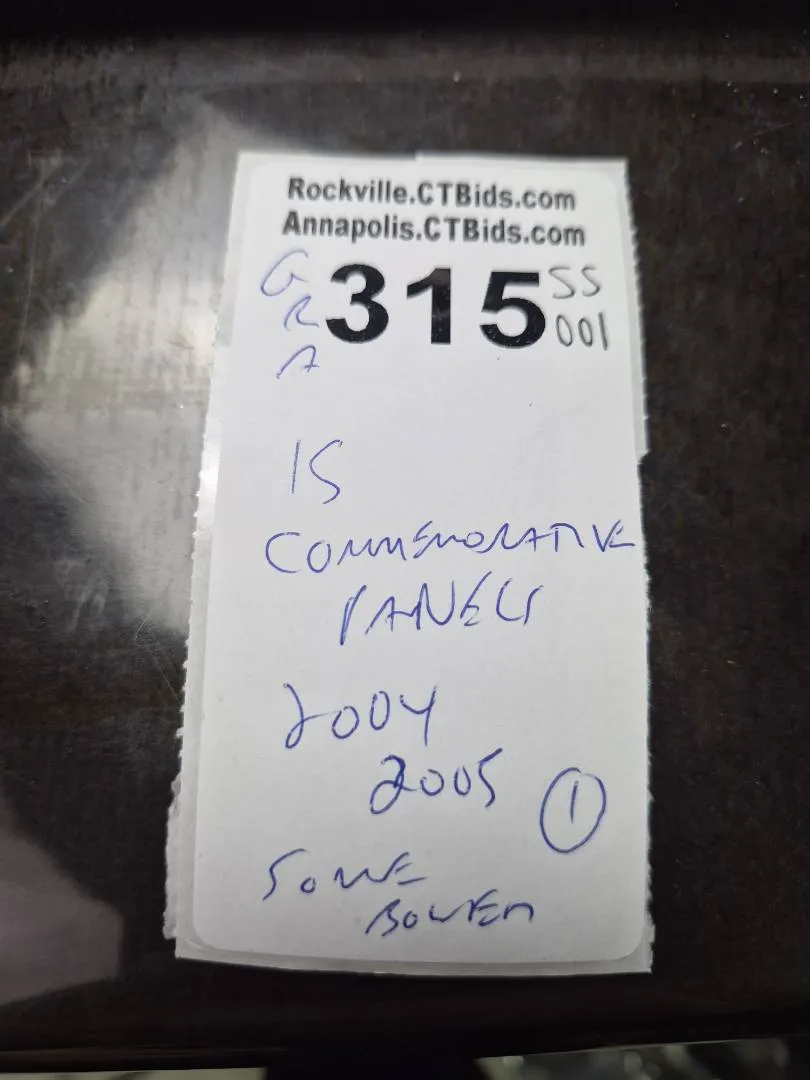 Rockville.CTBids.com
Annapolis.CTBids.com
GRA 315 SS
001
15
COMMEMORATIVE
PANELS
2004
2005 1
SOME